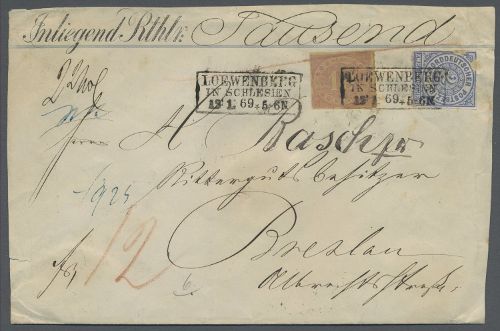 Inliegend Rthlr: Tausend
LOEWENBERG
IN SCHLESIEN
13 1. 69. 5-6N
LOEWENBERG
IN SCHLESIEN
1. 69. 5-6N
NORDDEUTSCHER
POSTBEZIRK
Herrn H Raschke
Rittergutsbesitzer
1925
12
Breslau
Albrechtsstraße
6.